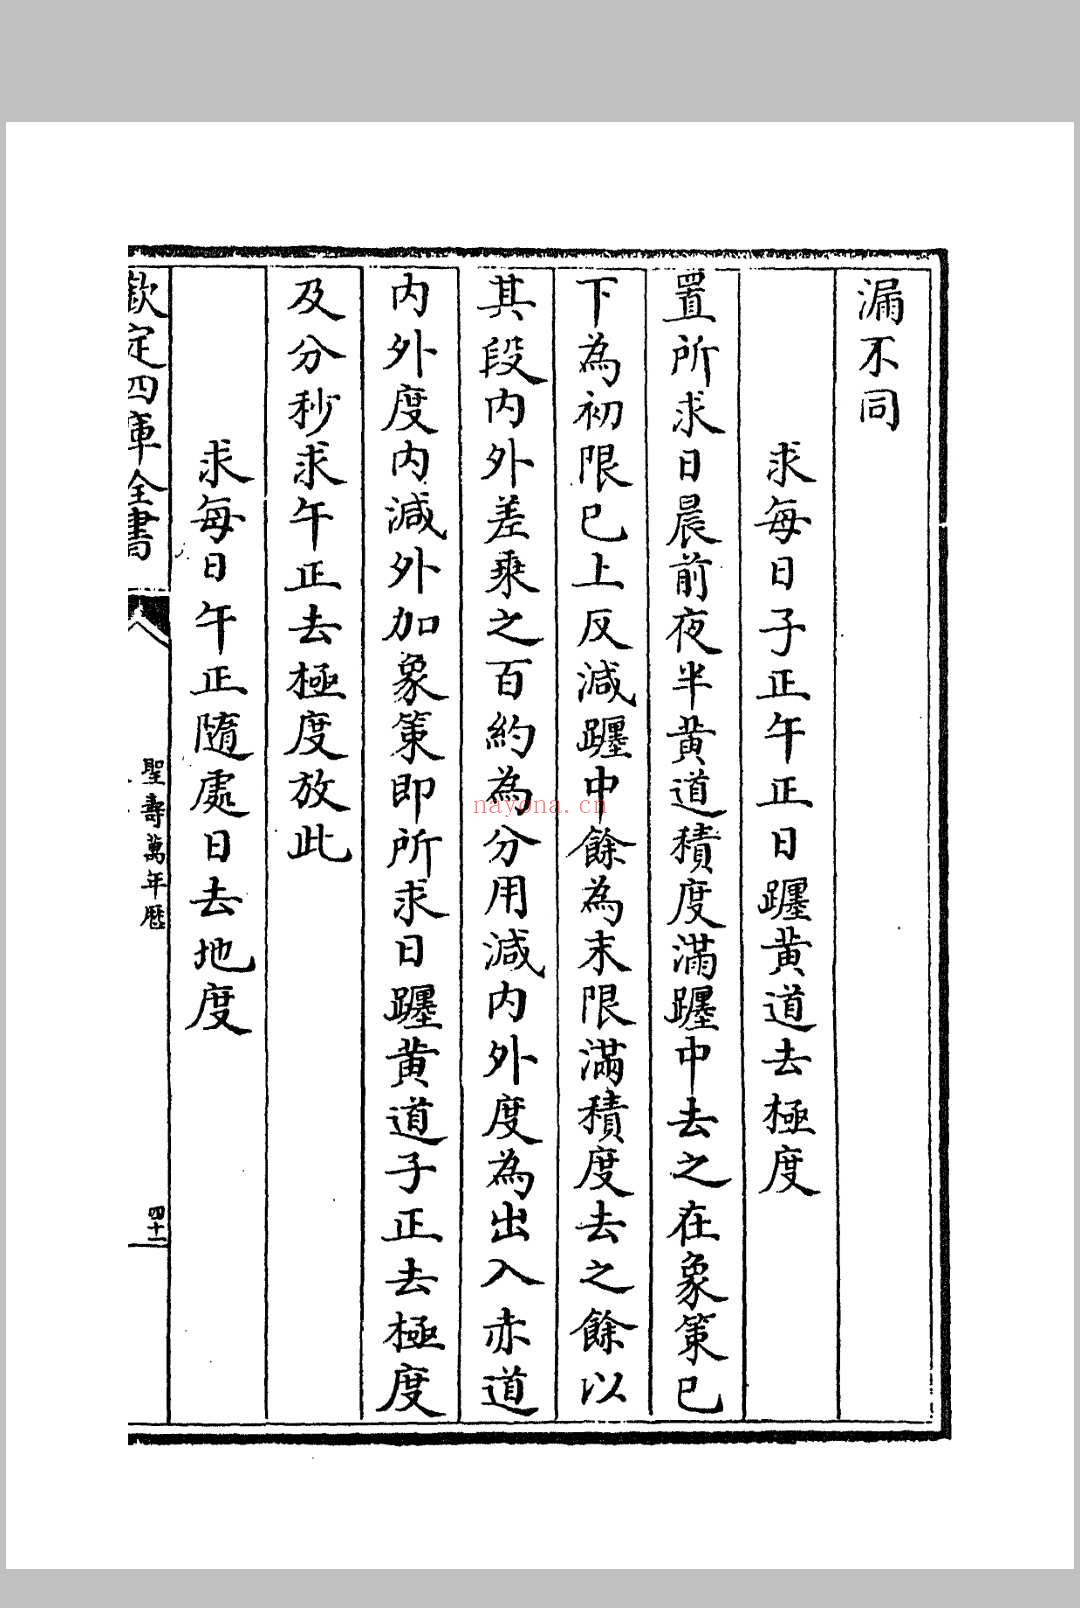 漏不同
求每日子正午正日躔黄道去極度
置所求日晨前夜半黄道積度滿躔中去之在象策已
下為初限已上反減躔中餘為末限滿積度去之餘以
其段内外差乘之百約為分用減内外度為出入赤道
内外度内減外加象策即所求日躔黄道子正去極度
及分秒求午正去極度放此
求每日午正隨處日去地度
欽定四庫全書
聖壽萬年厯
四十一
nayona.cn